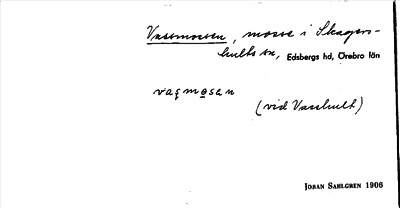 Vassmossen, mosse i Skagers-
hults sn, Edsbergs hd, Örebro län
vasmosan
(vid Vasshult)
JÖRAN SAHLGREN 1906